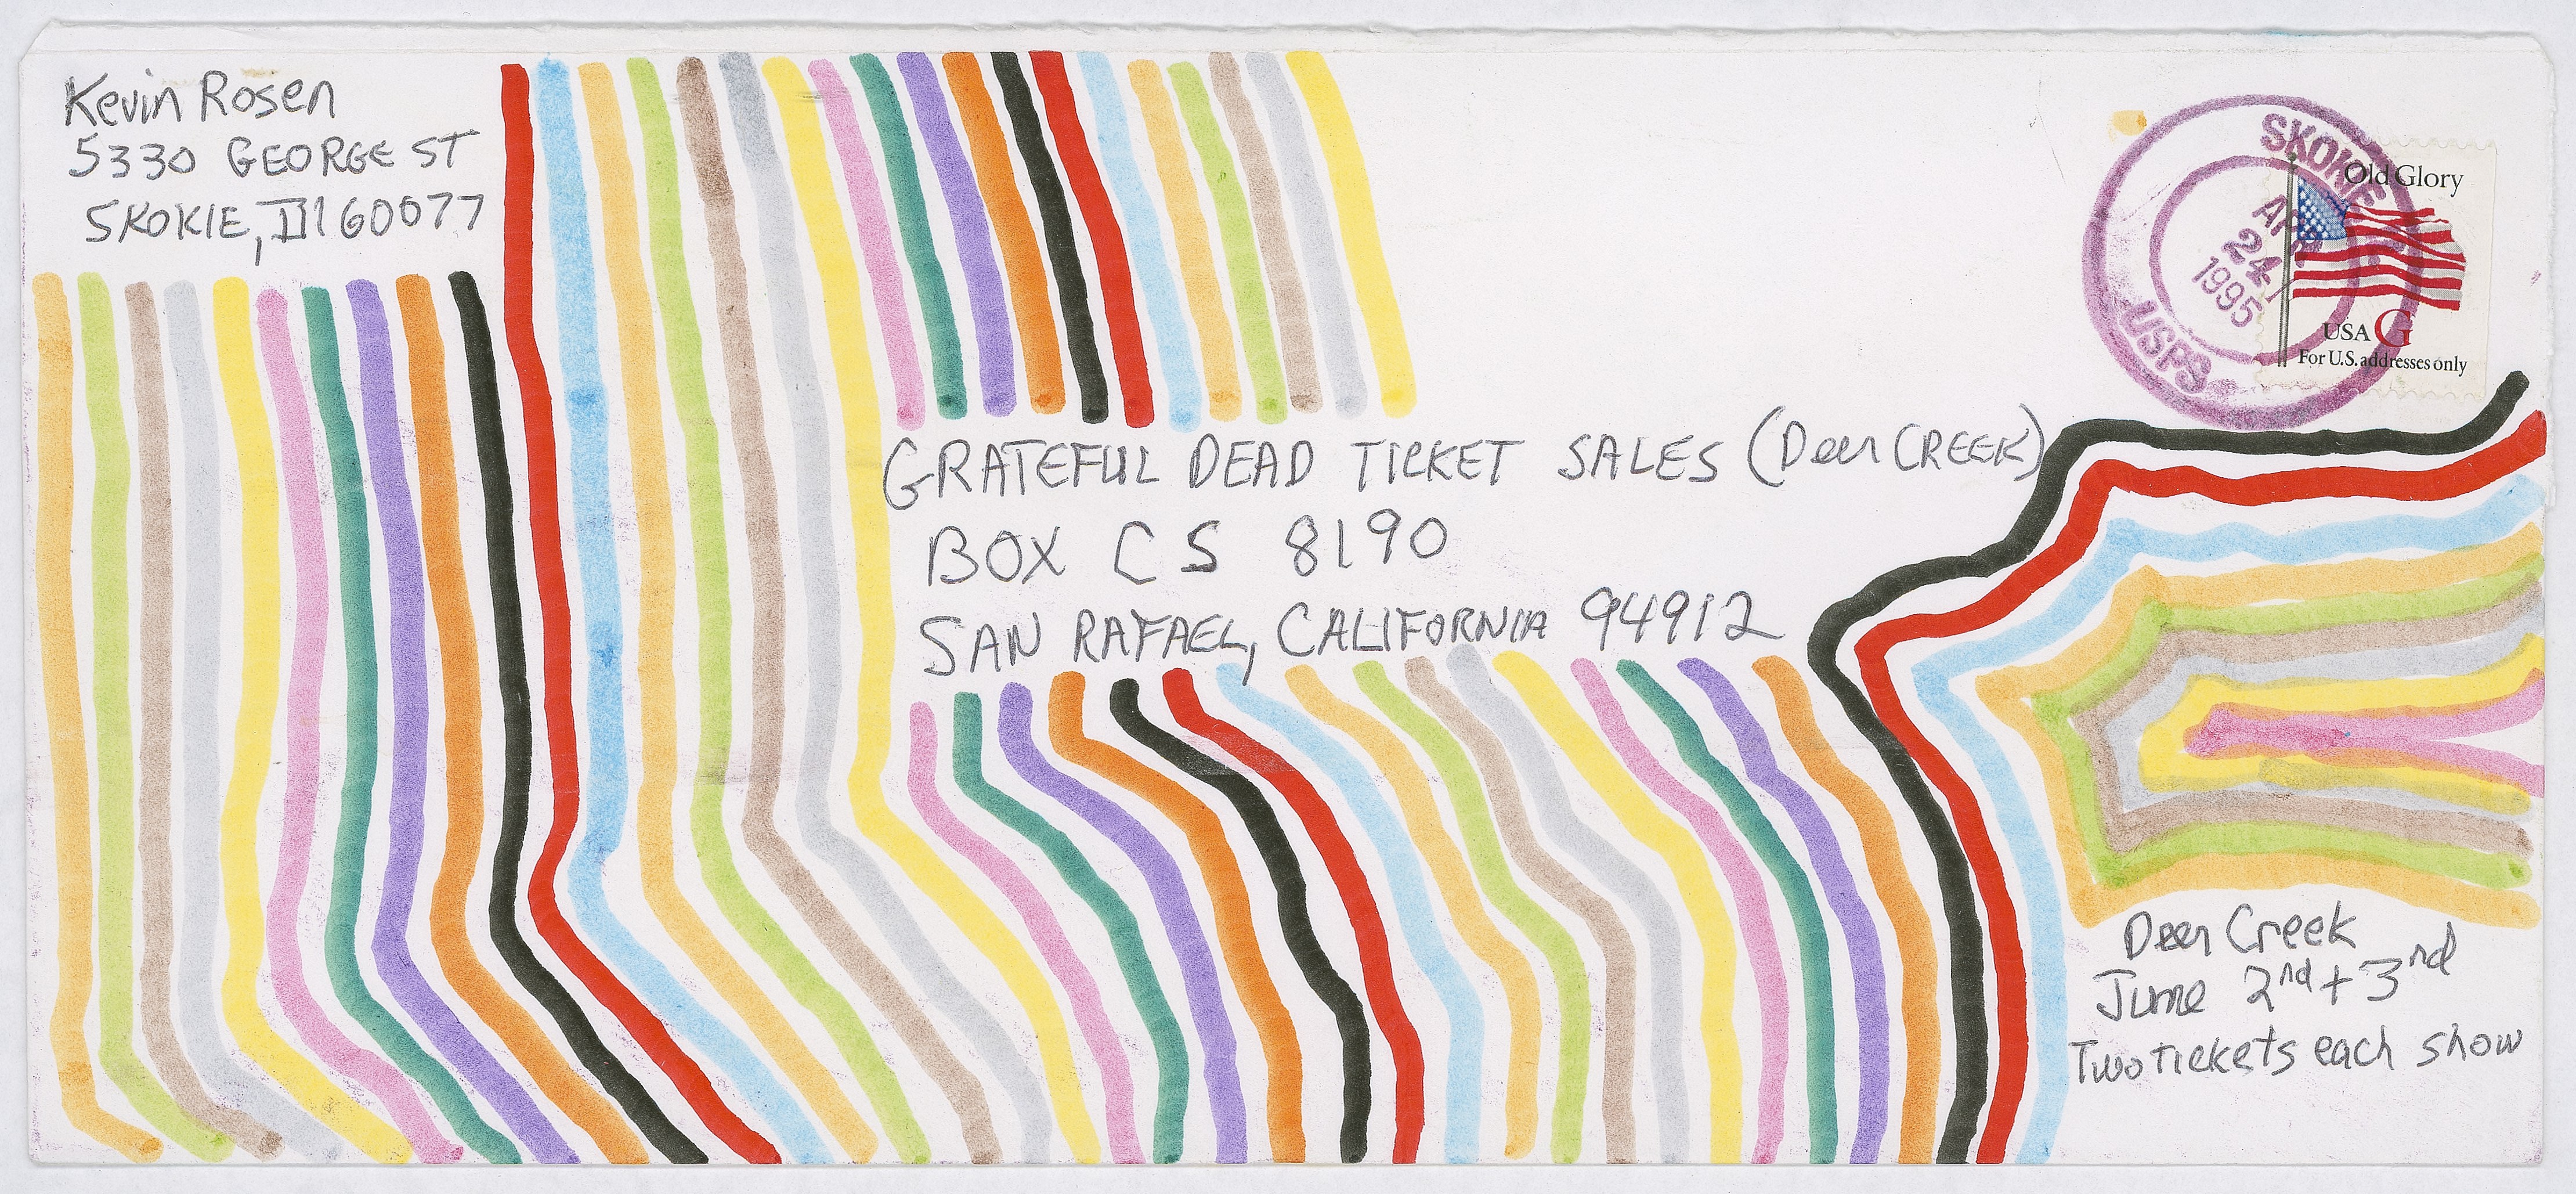 Kevin Rosen
5330 GEORGE ST
SKOKIE, Ill 60077
SKOKIE
APR
24
1995
USPS
Old Glory
USA G
For U.S. addresses only
GRATEFUL DEAD TICKET SALES (Deer CREEK)
BOX CS 8190
SAN RAFAEL, CALIFORNIA 94912
Deer Creek
June 2nd + 3nd
Two tickets each show